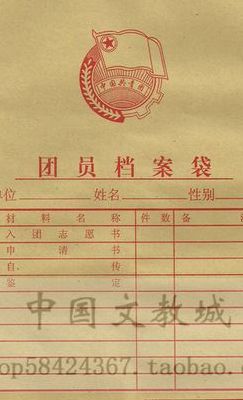 中国共青团
团员档案袋
单位 姓名 性别
材料名称 件数 备
入团志愿书
申请书
自传
鉴定
中国文教城
op58424367.taobao.c